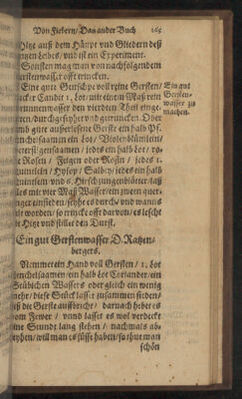 Von Fiebern / Das ander Buch 165
Hitz auß dem Häupt und Gliedern deß
gantzen Leibes / und ist ein Experiment.
Sonsten mag man von nachfolgendem
Gerstenwasser offt trincken.
Eine gute Gersche voll reine Gersten /
Zucker Candit 1. Lot / mit einem Maß rein
Brunnenwasser den vierdten Theil einge-
sotten / durchgeseyhet und getruncken Oder
Nimb gute außerlesene Gerste ein halb Pf.
Fenchelsaamen ein Lot / Violenblümlein /
Peterslgensaamen / jedes ein halb Lot / ro-
te Rosen / Feigen oder Rosin / jedes 1.
Hysop / Salbey / jedes ein halb
und 6. Hirschzungenblätter /
alles mit vier Maß Wasser / ein zimer
eingesotten / seyhe es durch und wanns
kalt worden / so trinck offt darvon / es lescht
die Hitz und stillet den Durst.
Ein gut
Gersten-
wasser zu
machen.
Ein gut Gerstenwasser D. Ratzen-
bergers.
Nimm ein Hand voll Gersten / 1. Lot
Fenchelsaamen / ein halb Lot Coriander / ein
Stübichen Wassers oder gleich ein wenig
mehr / diese Stück lasset zusammen sieden /
biß die Gerste aussbricht / darnach hebet es
vom Fewer / unnd lasset es wol verdeckt
eine Stundt lang stehen / nachmals ab-
/ will man es süsse haben / so thut man
schön